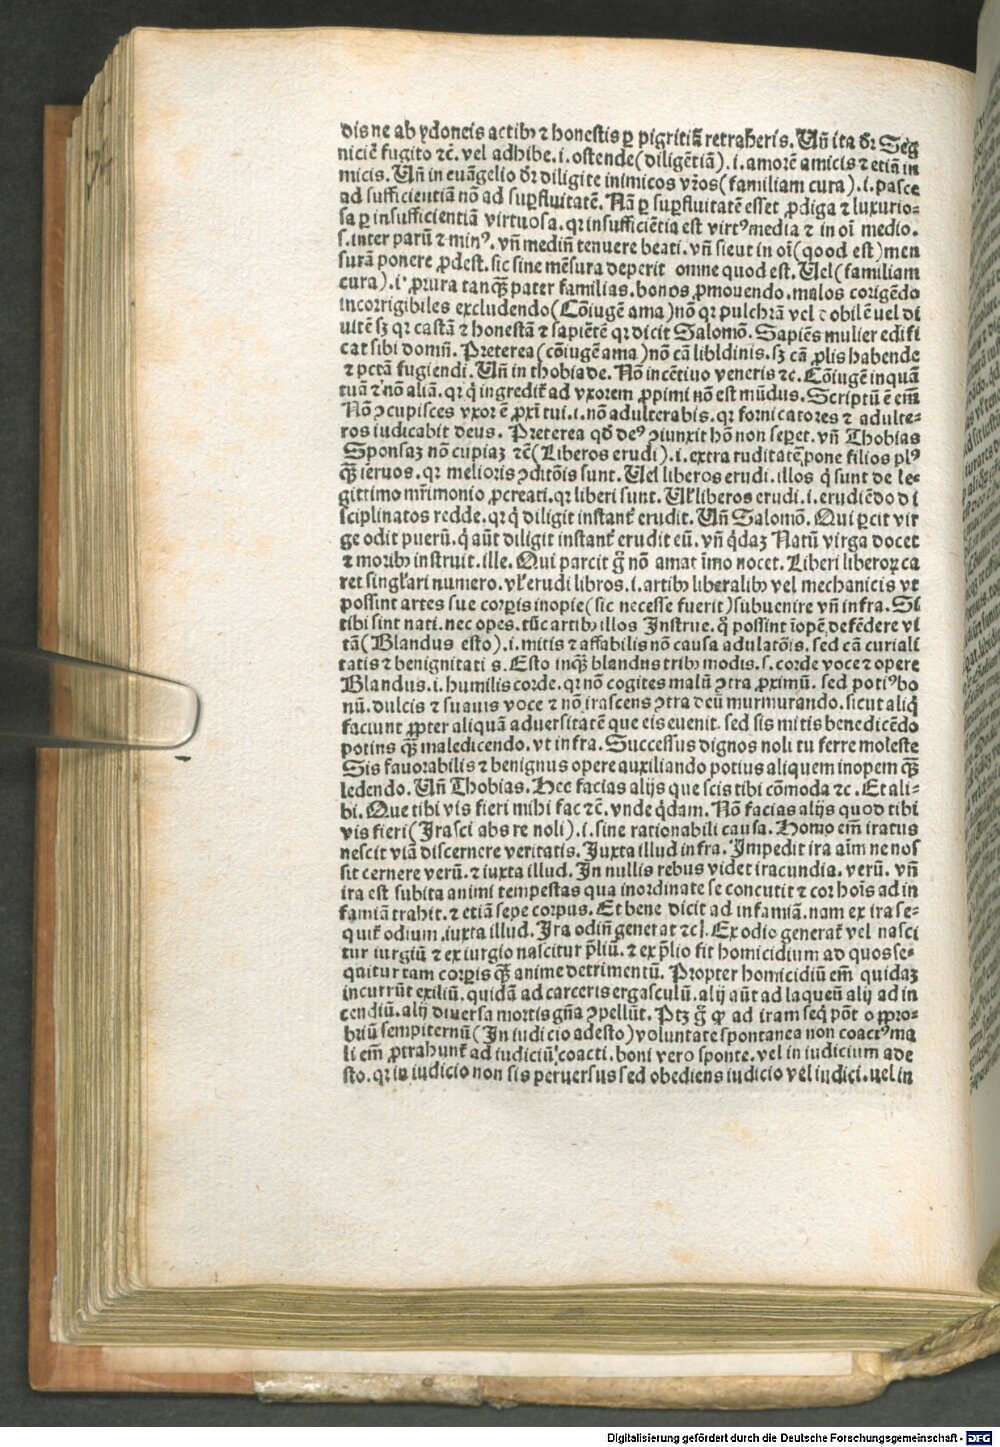 dis ne ab ydoneis actibꝫ ⁊ honestis ꝑ pigritiā retraheris. Uñ ita dꝛ Seg
niciē fugito ⁊c̄. vel adhibe .i. ostende (diligētiā) .i. amorē amicis ⁊ etiā in
micis. Uñ in euāgelio dꝛ diligite inimicos vr̄os (familiam cura) .i. pasce
ad sufficientiā nō ad suꝑfluitatē. Nā ꝑ suꝑfluitatē esset ꝓdiga ⁊ luxurio⸗
sa ꝑ insufficientiā virtuosa. qꝛ insufficiētia est virtꝰ media ⁊ in oī medio.
s. inter parū ⁊ minꝰ. vñ mediū tenuere beati. vñ sicut in oī (qood est) men
surā ponere ꝓdest. sic sine mēsura deperit omne quod est. Uel (familiam
cura) .i. ꝓcura tanqꝫ pater familias. bonos ꝓmouendo. malos corigēdo
incorrigibiles excludendo (Cōiugē ama) nō qꝛ pulchrā vel nobilē uel di
uitē sꝫ qꝛ castā ⁊ honestā ⁊ sapiētē qꝛ dicit Salomō. Sapiēs mulier edifi
cat sibi domū. Preterea (cōiugē ama) nō cā libldinis. sꝫ cā ꝓlis habende
⁊ pctā fugiendi. Uñ in thobia de. Nō incētiuo veneris ⁊c. Cōiugē inquā
tuā ⁊ nō aliā. qꝛ q̇ ingredit̄ ad vxorem ꝓpimi nō est mūdus. Scriptū ē em̄
Nō ꝯcupisces vxorē ꝓxī tui .i. nō adulterabis. qꝛ fornicatores ⁊ adulte⸗
ros iudicabit deus. Preterea qđ deꝰ ꝯiunxit hō non seꝑet. vñ Thobias
Sponsaꝫ nō cupiaꝫ ⁊c̄ (Liberos erudi) .i. extra ruditatē pone filios plꝰ
qꝫ seruos. qꝛ melioris ꝯditōis sunt. Uel liberos erudi. illos q̇ sunt de le⸗
gittimo mr̄imonio ꝓcreati. qꝛ liberi sunt. Ul̄ liberos erudi .i. erudiēdo di
sciplinatos redde. qꝛ q̇ diligit instant̄ erudit. Uñ Salomō. Qui ꝑcit vir
ge odit puerū. q̇ aūt diligit instant̄ erudit eū. vñ q̇daꝫ Natū virga docet
⁊ moribꝫ instruit. ille. Qui parcit g̊ nō amat īmo nocet. Liberi liberoꝝ ca
ret singl̄ari numero. vl̄ erudi libros .i. artibꝫ liberalibꝫ vel mechanicis vt
possint artes sue corꝑis inopie (sic necesse fuerit) subuenire vñ infra. Si
tibi sint nati. nec opes. tūc artibꝫ illos Instrue. q̊ possint īopē defēdere vi
tā (Blandus esto) .i. mitis ⁊ affabilis nō causa adulatōis. sed cā curiali
tatis ⁊ benignitati s. Esto inqꝫ blandus tribꝫ modis. s. corde voce ⁊ opere
Blandus .i. humilis corde. qꝛ nō cogites malū ꝯtra ꝓximū. sed potiꝰ bo
nū. dulcis ⁊ suauis voce ⁊ nō irascens ꝯtra deū murmurando. sicut aliq̇
faciunt ꝓpter aliquā aduersitatē que eis euenit. sed sis mitis benedicēdo
potius qꝫ maledicendo. vt infra. Successus dignos noli tu ferre moleste
Sis fauorabilis ⁊ benignus opere auxiliando potius aliquem inopem qꝫ
ledendo. Uñ Thobias. Hec facias alijs que scis tibi cōmoda ⁊c. Et ali⸗
bi. Que tibi vis fieri mihi fac ⁊c̄. vnde q̇dam. Nō facias alijs quod tibi
vis fieri (Irasci abs re noli) .i. sine rationabili causa. Homo em̄ iratus
nescit viā discernere veritatis. Iuxta illud infra. Impedit ira aīm ne nos
sit cernere verū. ⁊ iuxta illud. In nullis rebus videt iracundia. verū. vñ
ira est subita animi tempestas qua inordinate se concutit ⁊ cor hoīs ad in
famiā trahit. ⁊ etiā sepe corpus. Et bene dicit ad infamiā. nam ex ira se⸗
quit̄ odium. iuxta illud. Ira odiū generat ⁊c̄. Ex odio generat̄ vel nasci
tur iurgiū ⁊ ex iurgio nascitur p̄liū. ⁊ ex p̄lio fit homicidium ad quos se⸗
quitur tam corꝑis qꝫ anime detrimentū. Propter homicidiū em̄ quidaꝫ
incurrūt exiliū. quidā ad carceris ergasculū. alij aūt ad laqueū alij ad in
cendiū. alij diuersa mortis gn̄a ꝯpellūt. Ptꝫ g̊ ꝙ ad iram seq̇ pōt oꝓpro⸗
briū sempiternū (In iudicio adesto) voluntate spontanea non coactꝰ ma
li em̄ ꝓtrahunt̄ ad iudiciū coacti. boni vero sponte. vel in iudicium ade
sto. qꝛ in iudicio non sis peruersus sed obediens iudicio vel iudici. uel in
Digitalisierung gefördert durch die Deutsche Forschungsgemeinschaft - DFG